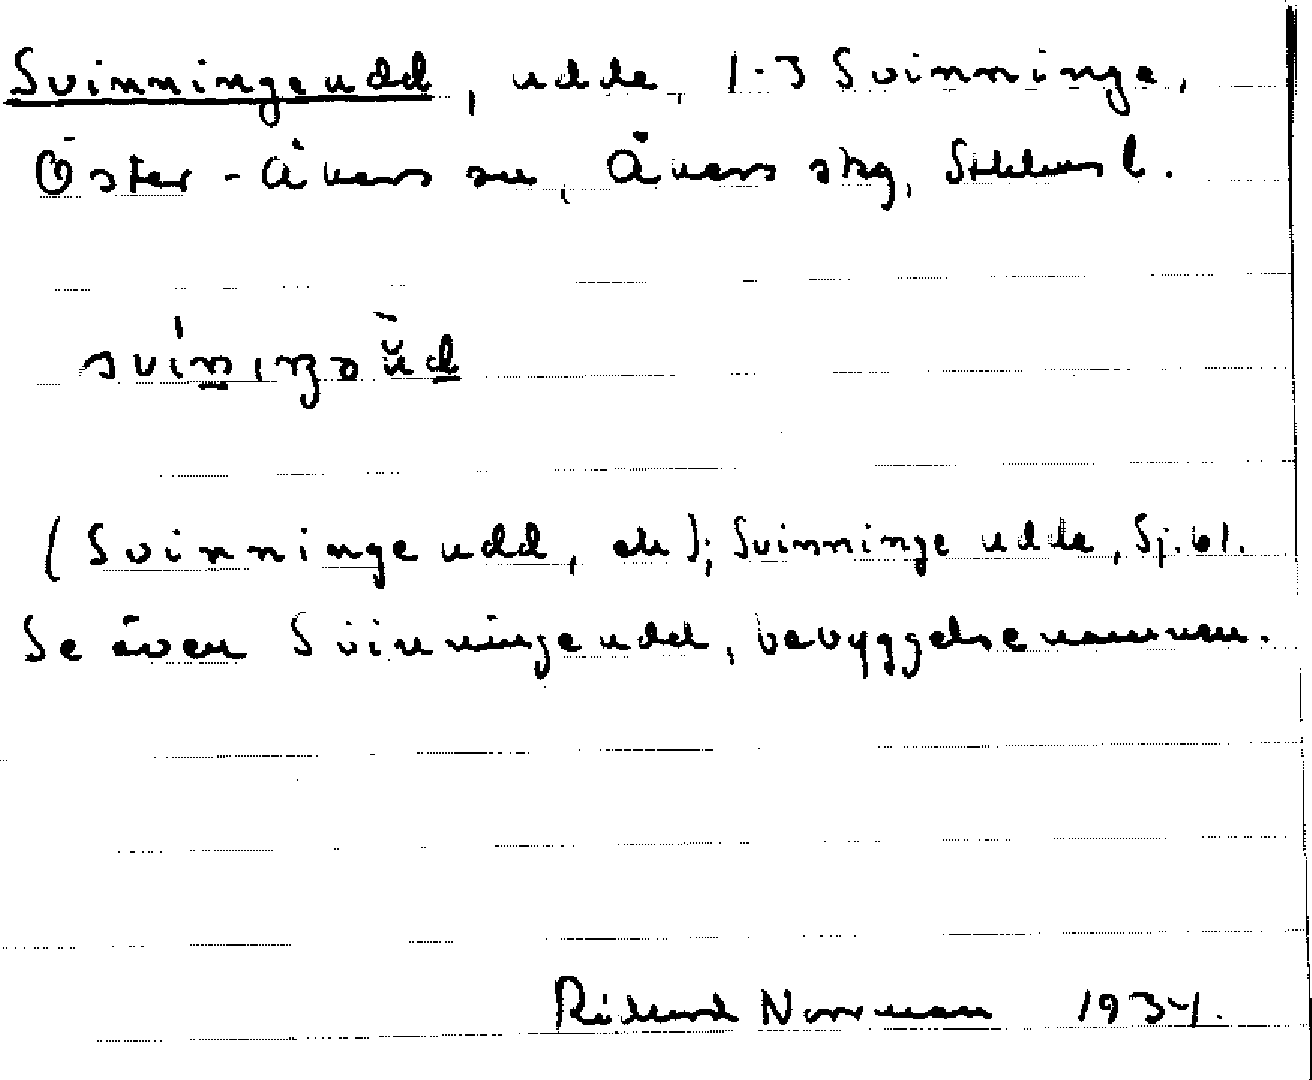 Svinningeudd, udde, 1-3 Svinninge,
Öster-Åkers sn, Åkers skg, Sthlms l.
(Svinningeudd, ek); Svinninge udde, Sj.bl.
Se även Svinningeudd, bebyggelsenamnen.
Richard Norrman 1934.